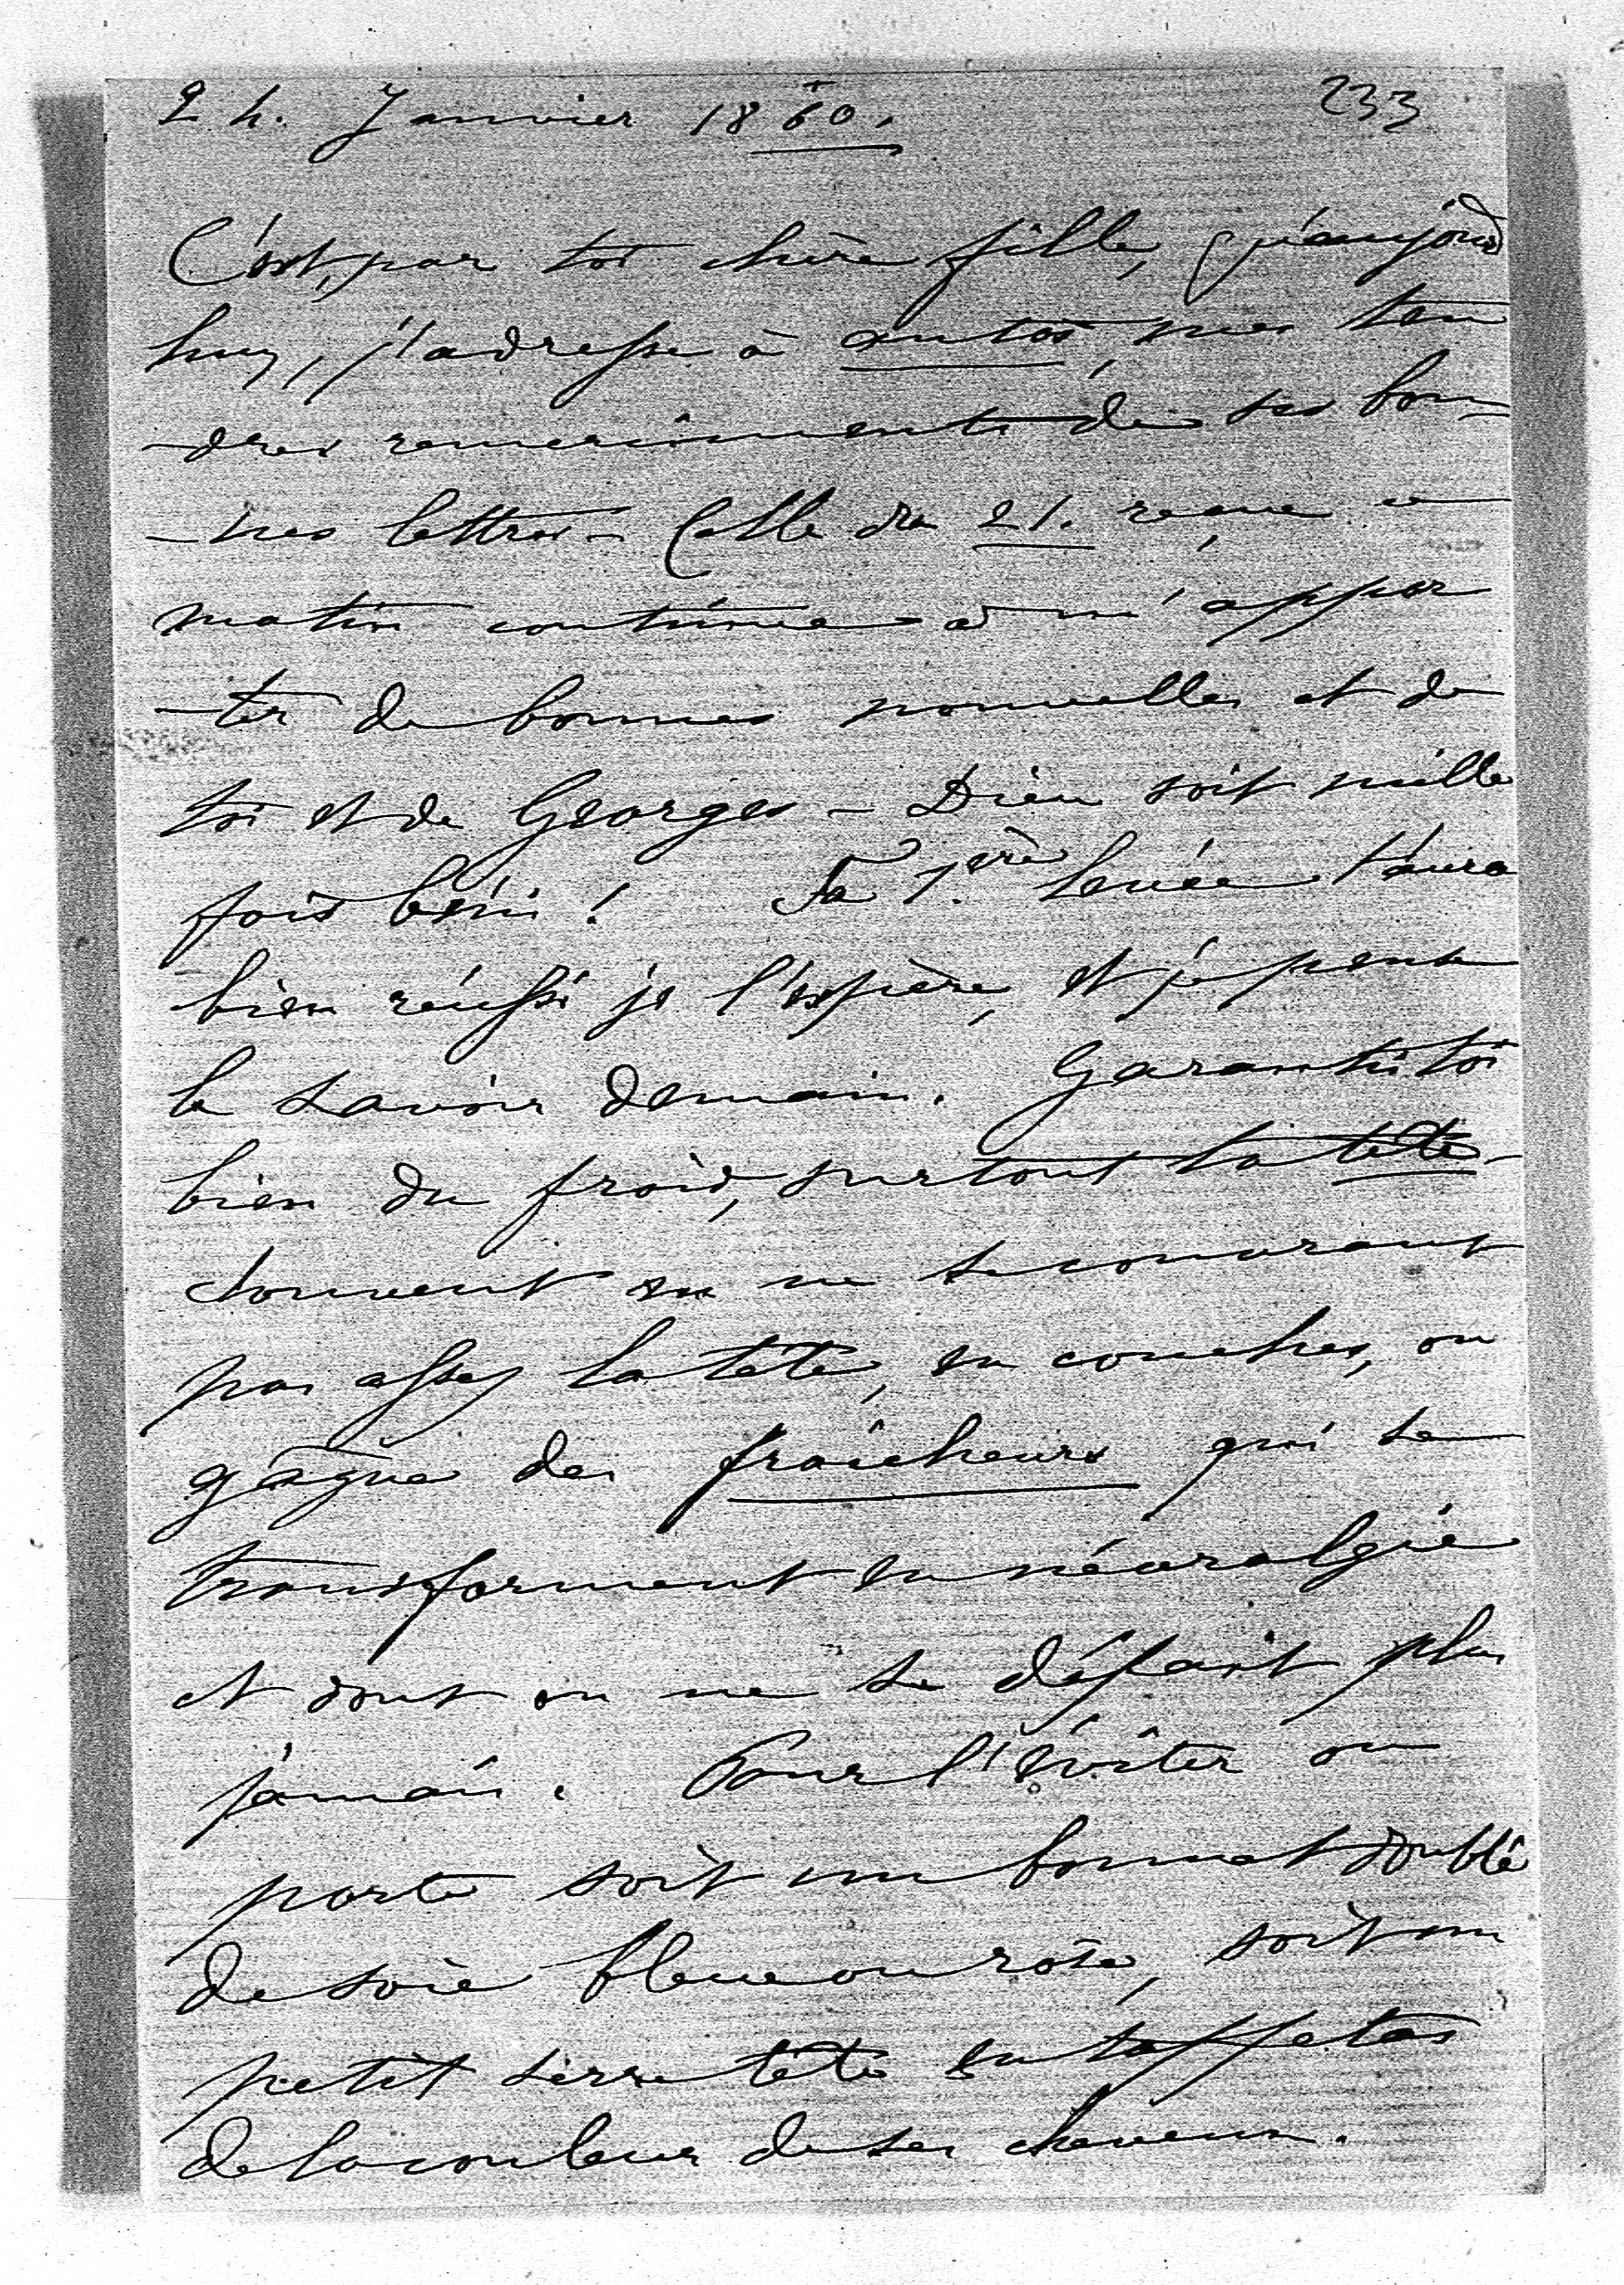 24. Janvier 1860. 233
C'est, par toi chère fille, qu'aujourd
huy, j'adresse à Antos, mes ten
-dres remercîments de ses bon-
-nes lettres - Celle du 21. reçue ce
matin continue à m'appor
-ter de bonnes nouvelles et de
toi et de Georges - Dieu soit mille
fois béni ! Ta 1.ère levée t'aura
bien réussi je l'espère, et je pense
le savoir demain. Garantis toi
bien du froid, surtout la tête -
Souvent en ne se couvrant
pas assez la tête, en couches, on
gâgne des fraîcheurs qui se
transforment en névralgie
et dont on ne se défait plus
jamais. Pour l'éviter on
porte soit un bonnet doublé
de soie bleue ou rose, soit un
petit serre tête en taffetas
de la couleur de ses cheveux.